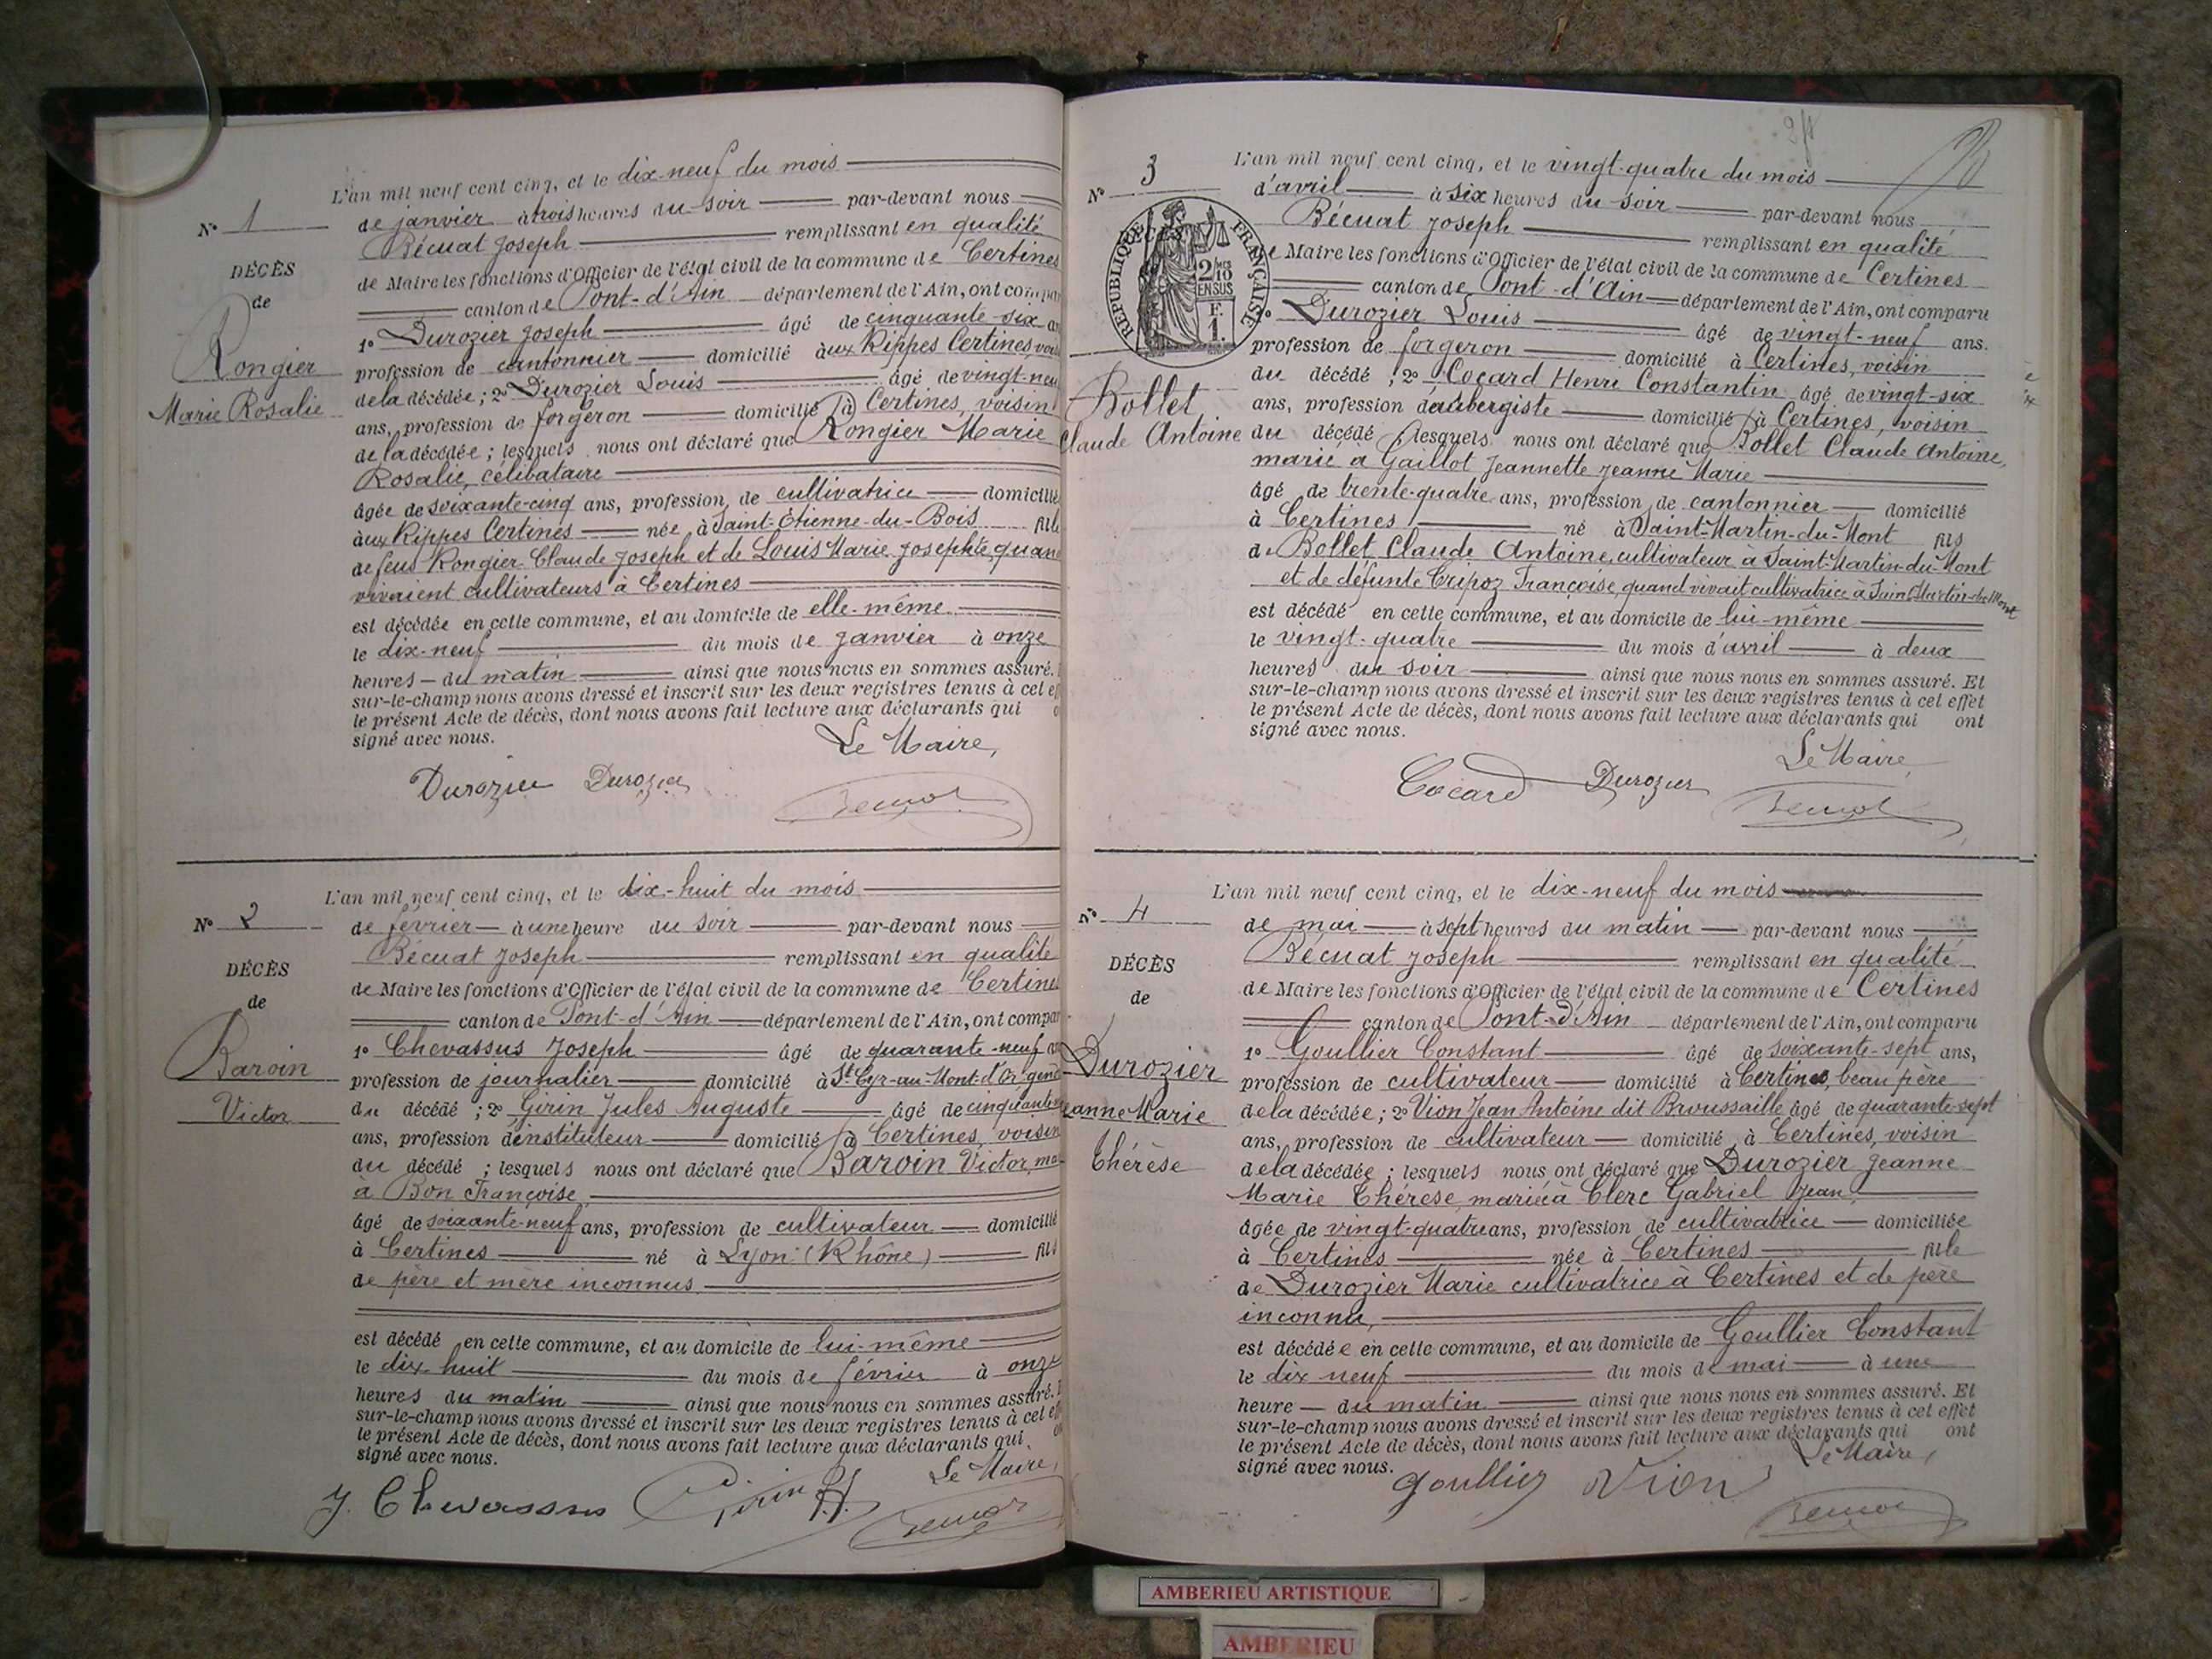 L'an mil neuf cent cinq, et le dix-neuf du mois
Nº 1
de janvier à trois heures du soir par-devant nous
Bécuat Joseph remplissant en qualité
DÉCÈS
de Maire les fonctions d'Officier de l'état civil de la commune de Certines
de
canton de Pont-d'Ain département de l'Ain, ont compar
1º Durozier Joseph âgé de cinquante-six an
Rongier
profession de cantonnier domicilié aux Rippes Certines, vois
Marie Rosalie
de la décédée ; 2º Durozier Louis âgé de vingt-neu
ans, profession de forgeron domicilié à Certines, voisin
de la décédée ; lesquels nous ont déclaré que Rongier Marie
Rosalie, célibataire
âgée de soixante-cinq ans, profession de cultivatrice domicilié
aux Rippes Certines née à Saint-Étienne-du-Bois fille
de feus Rongier Claude Joseph et de Louis Marie Josephte, quan
vivaient cultivateurs à Certines
est décédée en cette commune, et au domicile de elle-même
le dix-neuf du mois de janvier à onze
heures du matin ainsi que nous nous en sommes assuré.
sur-le-champ nous avons dressé et inscrit sur les deux registres tenus à cet ef
le présent Acte de décès, dont nous avons fait lecture aux déclarants qui o
signé avec nous.
Le Maire,
Durozier Durozier Bécuat
L'an mil neuf cent cinq, et le dix-huit du mois
Nº 2
de février à une heure du soir par-devant nous
Bécuat Joseph remplissant en qualité
DÉCÈS
de Maire les fonctions d'Officier de l'état civil de la commune de Certines
de
canton de Pont-d'Ain département de l'Ain, ont compar
Baroin
1º Chevassus Joseph âgé de quarante-neuf an
profession de journalier domicilié à St Cyr-au-Mont-d'Or, gend
Victor
du décédé ; 2º Girin Jules Auguste âgé de cinquante
ans, profession d'instituteur domicilié à Certines, voisin
du décédé ; lesquels nous ont déclaré que Baroin Victor, ma-
à Bon Françoise,
âgé de soixante-neuf ans, profession de cultivateur domicilié
à Certines né à Lyon (Rhône) fils
de père et mère inconnus
est décédé en cette commune, et au domicile de lui-même
le dix huit du mois de février à onze
heures du matin ainsi que nous nous en sommes assuré.
sur-le-champ nous avons dressé et inscrit sur les deux registres tenus à cet eff
le présent Acte de décès, dont nous avons fait lecture aux déclarants qui
signé avec nous.
Le Maire,
J. Chevassus Girin Bécuat
L'an mil neuf cent cinq, et le vingt-quatre du mois
Nº 3
d'avril à six heures du soir par-devant nous
Bécuat Joseph remplissant en qualité
RÉPUBLIQUE FRANÇAISE
2/10 EN SUS
F. 1.
e Maire les fonctions d'Officier de l'état civil de la commune de Certines
canton de Pont-d'Ain département de l'Ain, ont comparu
1º Durozier Louis âgé de vingt-neuf ans.
profession de forgeron domicilié à Certines, voisin
Bollet
du décédé ; 2º Cocard Henri Constantin âgé de vingt-six
ans, profession d'aubergiste domicilié à Certines, voisin
Claude Antoine
du décédé ; lesquels nous ont déclaré que Bollet Claude Antoine,
marié à Gaillot Jeannette Jeanne Marie
âgé de trente-quatre ans, profession de cantonnier domicilié
à Certines né à Saint-Martin-du-Mont fils
de Bollet Claude Antoine, cultivateur à Saint-Martin-du-Mont
et de défunte Cripoz Françoise, quand vivait cultivatrice à Saint-Martin-du-Mont
est décédé en cette commune, et au domicile de lui-même
le vingt-quatre du mois d'avril à deux
heures du soir ainsi que nous nous en sommes assuré. Et
sur-le-champ nous avons dressé et inscrit sur les deux registres tenus à cet effet
le présent Acte de décès, dont nous avons fait lecture aux déclarants qui ont
signé avec nous.
Le Maire
Cocard Durozier Bécuat
L'an mil neuf cent cinq, et le dix-neuf du mois
Nº 4
de mai à sept heures du matin par-devant nous
Bécuat Joseph remplissant en qualité
DÉCÈS
de Maire les fonctions d'Officier de l'état civil de la commune de Certines
de
canton de Pont-d'Ain département de l'Ain, ont comparu
Durozier
1º Goullier Constant âgé de soixante-sept ans,
profession de cultivateur domicilié à Certines, beau père
eanne Marie
de la décédée ; 2º Vion Jean Antoine dit Broussaille âgé de quarante-sept
ans, profession de cultivateur domicilié à Certines, voisin
Thérèse
de la décédée ; lesquels nous ont déclaré que Durozier Jeanne
Marie Thérèse, mariée à Clerc Gabriel Jean,
âgée de vingt-quatre ans, profession de cultivatrice domiciliée
à Certines née à Certines fille
de Durozier Marie cultivatrice à Certines et de père
inconnu,
est décédée en cette commune, et au domicile de Goullier Constant
le dix neuf du mois de mai à une
heure du matin ainsi que nous nous en sommes assuré. Et
sur-le-champ nous avons dressé et inscrit sur les deux registres tenus à cet effet
le présent Acte de décès, dont nous avons fait lecture aux déclarants qui ont
signé avec nous.
Le Maire,
Goullier Vion Bécuat
AMBERIEU ARTISTIQUE
AMBERIEU